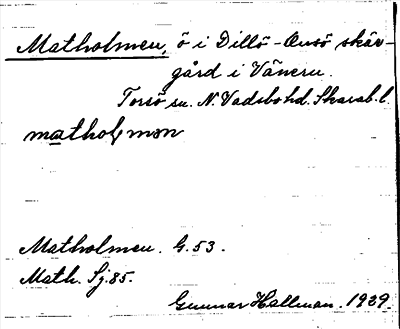 Matholmen, ö i Dillö-Onsö skär-
gård i Vänern.
Torsö sn. N. Vadsbo hd. Skarab. l.
matholmən
Matholmen. G. 53.
Math. Sj. 85.
Gunnar Hallman. 1939.